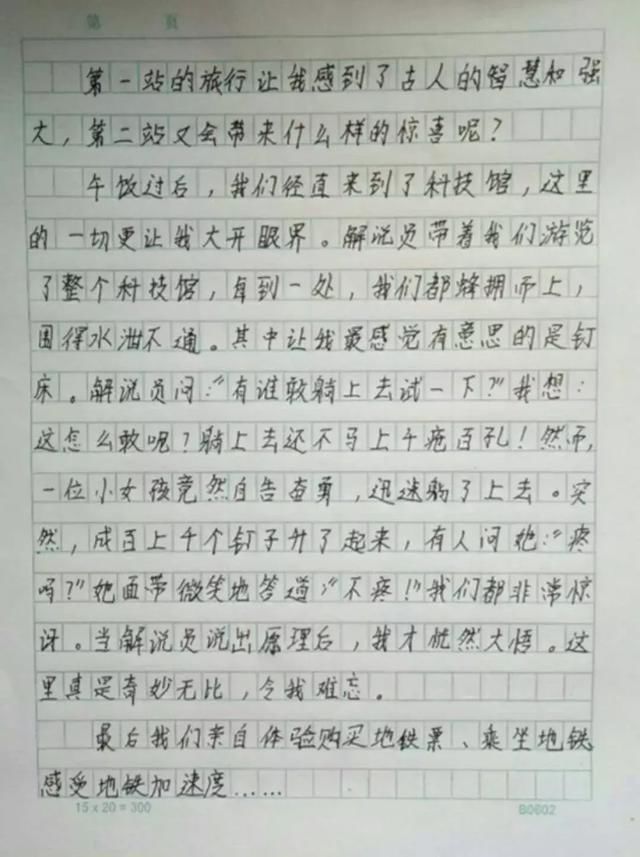 第 頁
第一站的旅行让我感到了古人的智慧和强
大，第二站又会带来什么样的惊喜呢？
午饭过后，我们径直来到了科技馆，这里
的一切更让我大开眼界。解说员带着我们游览
了整个科技馆，每到一处，我们都蜂拥而上，
围得水泄不通。其中让我最感觉有意思的是钉
床。解说员问：“有谁敢躺上去试一下？”我想：
这怎么敢呢？躺上去还不马上千疮百孔！然而，
一位小女孩竟然自告奋勇，迅速躺了上去。突
然，成百上千个钉子升了起来，有人问她：“疼
吗？”她面带微笑地答道：“不疼！”我们都非常惊
讶。当解说员说出原理后，我才恍然大悟。这
里真是奇妙无比，令我难忘。
最后我们亲自体验购买地铁票、乘坐地铁
感受地铁加速度……
15 x 20 = 300 B0602